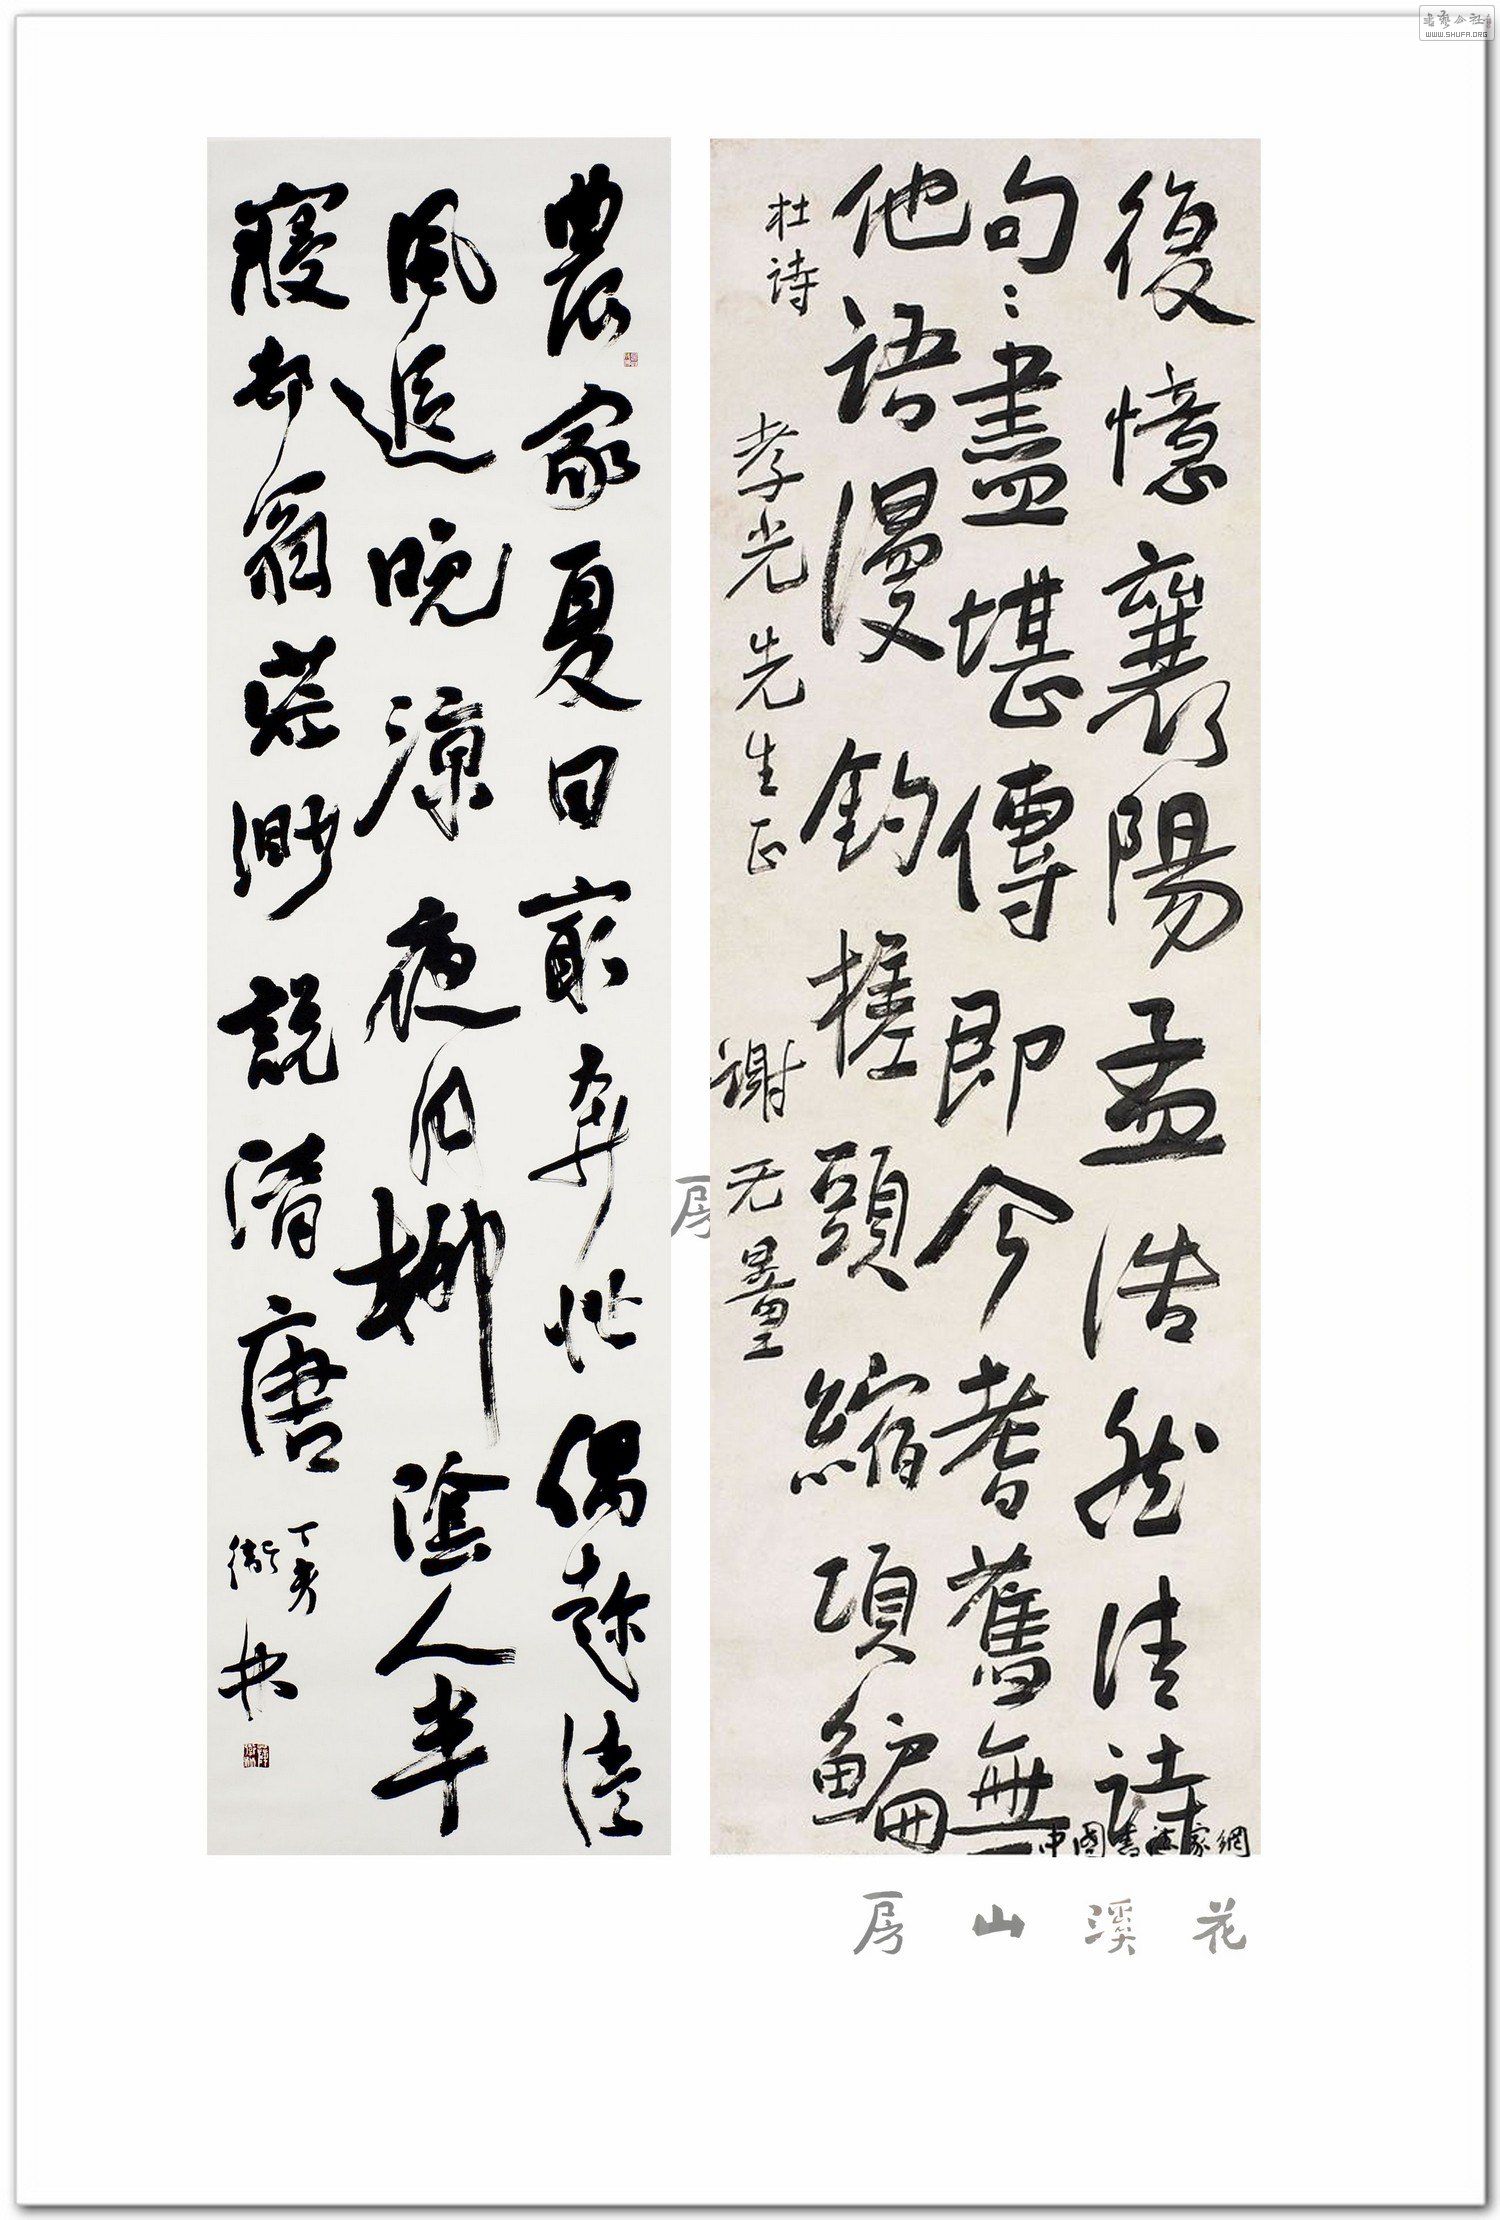 書藝公社
WWW.SHUFA.ORG
復憶襄陽孟浩然清詩
句〻盡堪傳即今耆舊無
他語漫釣槎頭縮項鯿
杜诗
孝光先生正
谢无量
中國書法家網
農家夏日最奔忙偶趁清
風追晚涼夜月柳陰人半
寢邨翁茫渺説隋唐
丁亥
衛林
房
花溪山房